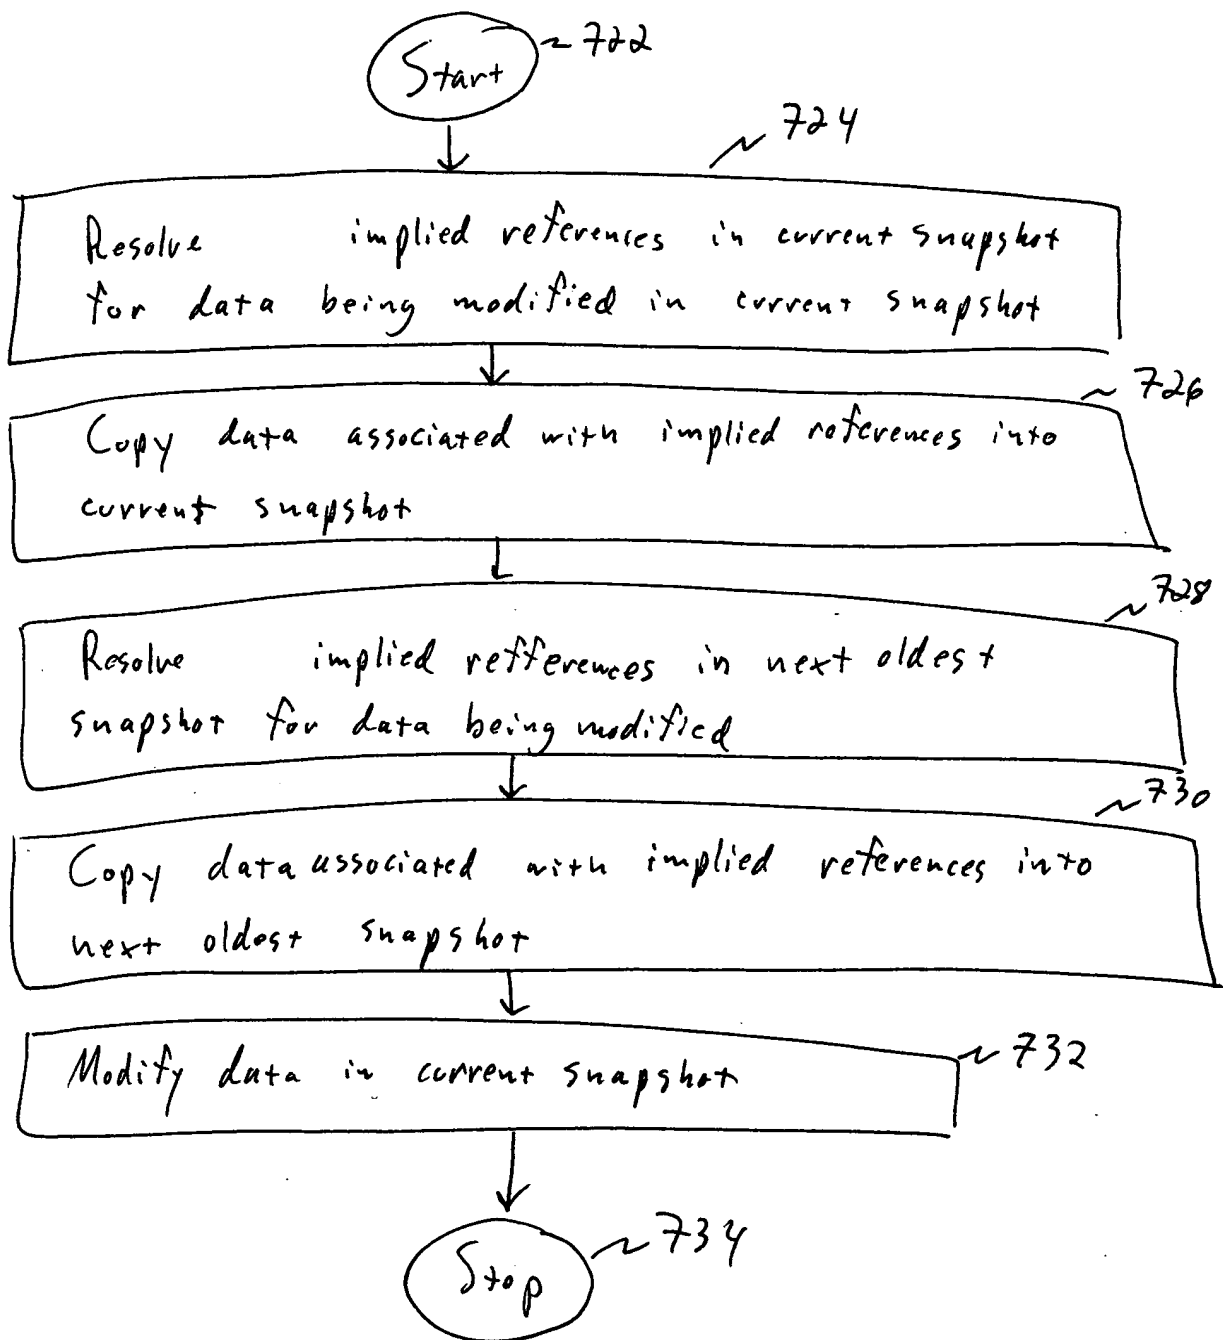 Start
722
724
Resolve implied references in current snapshot
for data being modified in current snapshot
726
Copy data associated with implied references into
current snapshot
728
Resolve implied refferences in next oldest
snapshot for data being modified
730
Copy data associated with implied references into
next oldest snapshot
Modify data in current snapshot
732
734
Stop